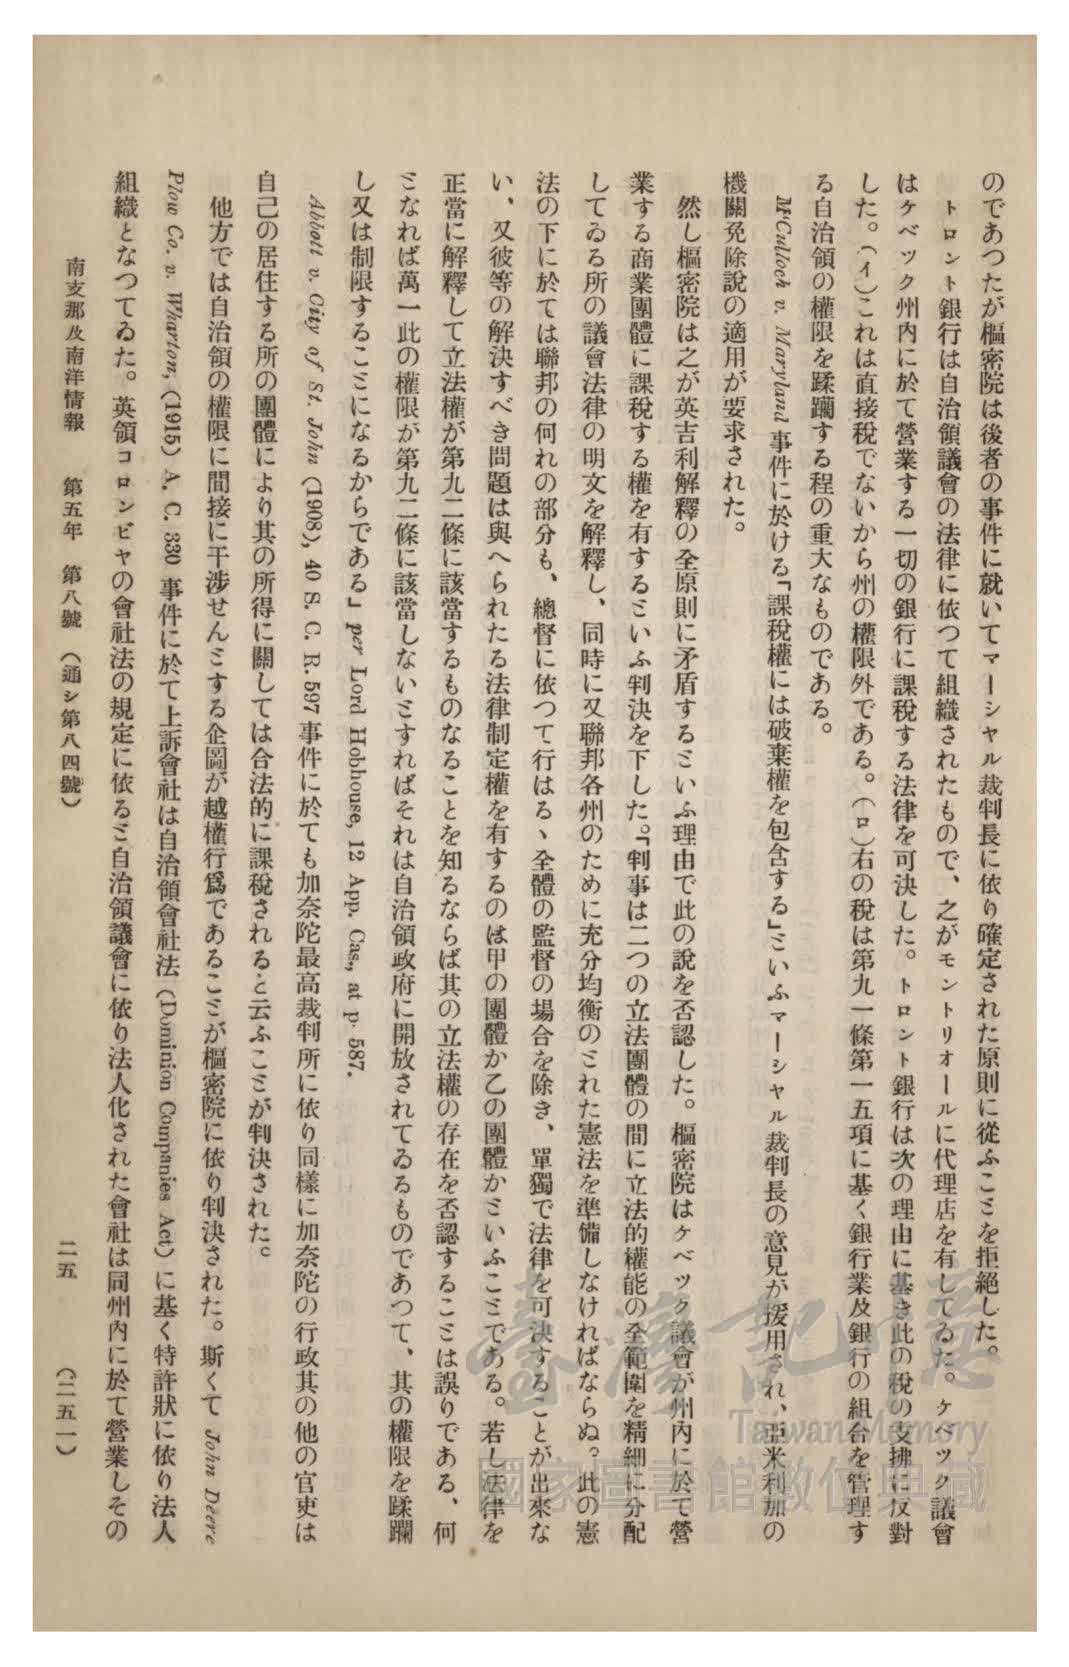 のであつたが樞密院は後者の事件に就いてマーシヤル裁判長に依り確定された原則に從ふことを拒絕した。
トロント銀行は自治領議會の法律に依つて組織されたもので、之がモントリオールに代理店を有してゐた。ケベツク議會
はケベツク州内に於て營業する一切の銀行に課稅する法律を可決した。トロント銀行は次の理由に基き此の稅の支拂に反對
した。(イ)これは直接稅でないから州の權限外である。(ロ)右の稅は第九一條第一五項に基く銀行業及銀行の組合を管理す
る自治領の權限を蹂躙する程の重大なものである。
McCulloch v. Maryland 事件に於ける「課稅權には破棄權を包含する」といふマーシヤル裁判長の意見が援用され、亞米利加の
機關免除說の適用が要求された。
然し樞密院は之が英吉利解釋の全原則に矛盾するといふ理由で此の說を否認した。樞密院はケベツク議會が州內に於て營
業する商業團體に課稅する權を有するといふ判決を下した。「判事は二つの立法團體の間に立法的權能の全範圍を精細に分配
してゐる所の議會法律の明文を解釋し、同時に又聯邦各州のために充分均衡のとれた憲法を準備しなければならぬ。此の憲
法の下に於ては聯邦の何れの部分も、總督に依つて行はるゝ全體の監督の場合を除き、單獨で法律を可決することが出來な
い、又彼等の解決すべき問題は與へられたる法律制定權を有するのは甲の團體か乙の團體かといふことである。若し法律を
正當に解釋して立法權が第九二條に該當するものなることを知るならば其の立法權の存在を否認することは誤りである、何
となれば萬一此の權限が第九二條に該當しないとすればそれは自治領政府に開放されてゐるものであつて、其の權限を蹂躙
し又は制限することになるからである」per Lord Hobhouse, 12 App. Cas., at p. 587.
Abbott v. City of St. John (1908), 40 S. C. R. 597 事件に於ても加奈陀最高裁判所に依り同樣に加奈陀の行政其の他の官吏は
自己の居住する所の團體により其の所得に關しては合法的に課稅されると云ふことが判決された。
他方では自治領の權限に間接に干涉せんとする企圖が越權行爲であることが樞密院に依り判決された。斯くて John Deere
Plow Co. v. Wharton, (1915) A. C. 330 事件に於て上訴會社は自治領會社法 (Dominion Companies Act) に基く特許狀に依り法人
組織となつてゐた。英領コロンビヤの會社法の規定に依ると自治領議會に依り法人化された會社は同州內に於て營業しその
南支那及南洋情報 第五年 第八號 (通シ第八四號) 二五 (二五一)
臺灣記憶
Taiwan Memory
國家圖書館數位典藏